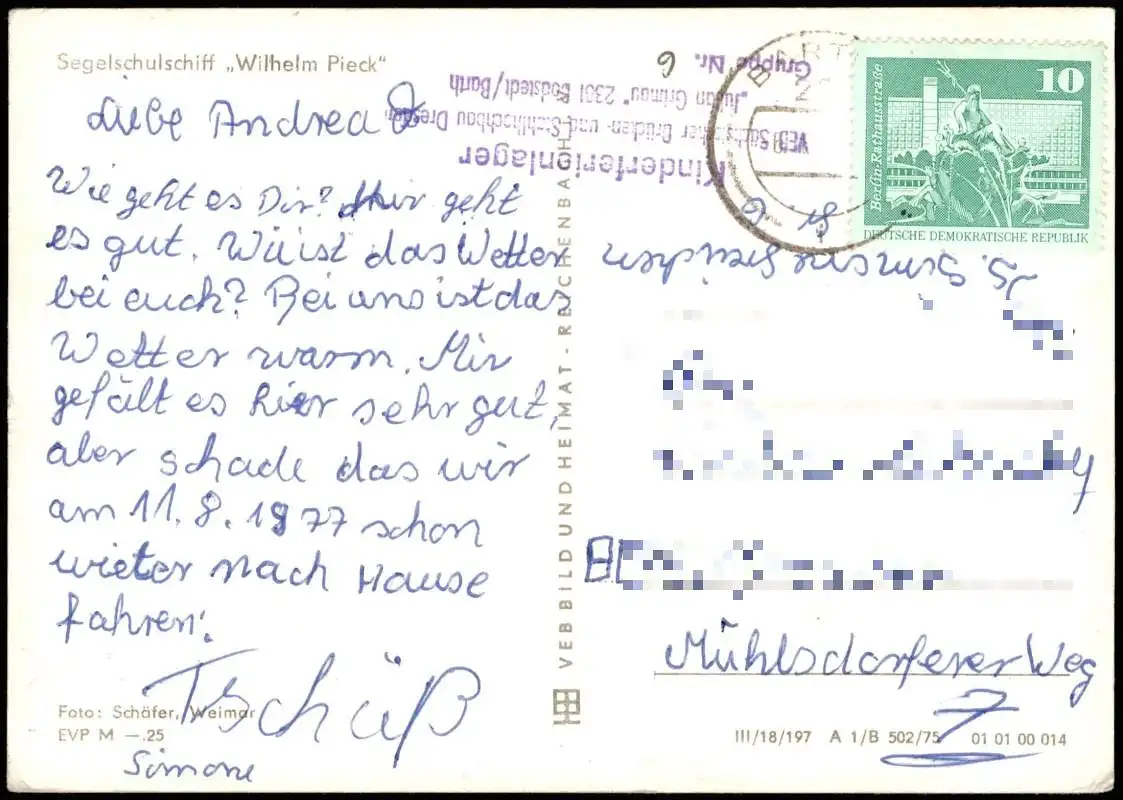 Segelschulschiff „Wilhelm Pieck"
Liebe Andrea
Wie geht es Dir? Mir geht
es gut. Wie ist das Wetter
bei euch? Bei uns ist das
Wetter warm. Mir
gefält es hier sehr gut,
aber schade das wir
am 11.8.1977 schon
wieter nach Hause
fahren.
Tschüß
Simone
Foto: Schäfer, Weimar
EVP M —.25
VEB BILD UND HEIMAT · REICHENBACH
Kinderferienlager
VEB Sächsischer Brücken- und Stahlhochbau Dresden
„Julian Grimau" 2301 Bodstedt/Barth
Gruppe Nr. 9
BART
10
Berlin-Rathausstraße
DEUTSCHE DEMOKRATISCHE REPUBLIK
Simone
Mühlsdorferer Weg
7
III/18/197 A 1/B 502/75 01 01 00 014